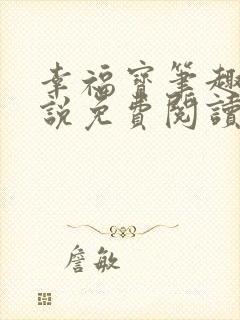 幸福寶筆趣
説免費閱讀
詹敏